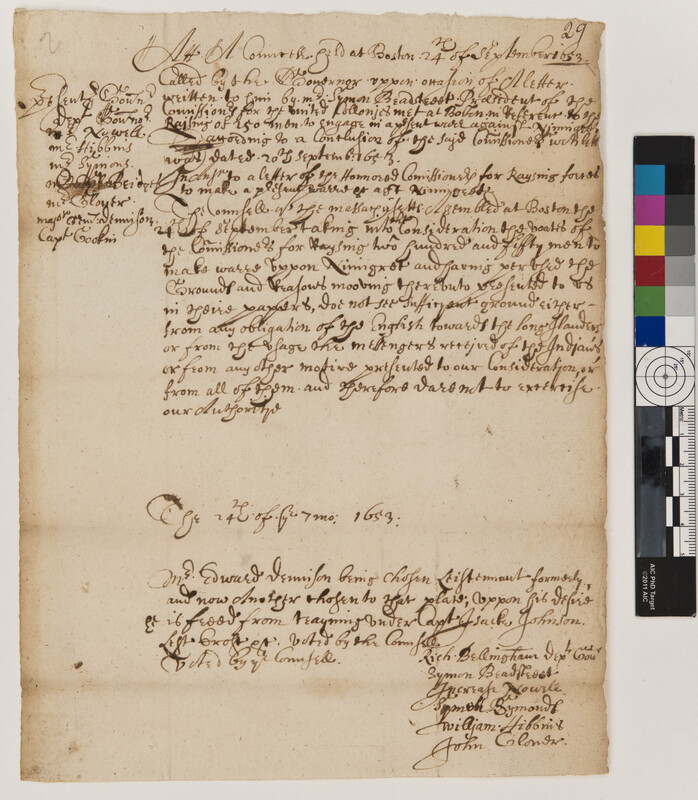 29
2
Att A Councell held at Boston 24th of September 1653.
Called by the Governor uppon occasion of A letter
written to him by mr Symon Bradstreet President of the
Comissionrs for the united Collonies met at Boston in reference to the
Raising of 250 men to engage in a present warre against Ninnigrett
according to a Conclusion of the said Comissioners
dated 20th September 1653.
Present Govr
Dept Govr
mr Nowell
mr Hibbins
mr Symons
mr Glover
major Genr Dennison
Capt Gookin
In Answr to a letter of the Honnored Comissionrs for Raysing forces
to make a present warre agst Ninnigrett
The Counsell of the massathusetts Assembled at Boston the
24th of September taking into Consideration the voats of
the Comissioners for Raysing two hundred and fiffty men to
make warre uppon Ninigret and having perused the
Grounds and Reasons mooving thereunto presented to us
in theire papers, doe not see sufficient ground either
from any obligation of the English towards the long Ilanders
or from the usage the messengers received of the Indians
or from any other motive presented to our Consideration, or
from all of them. and therefore dare not to exercise
our Authoritye
The 24th of ye 7 mo: 1653:
Mr Edward Dennison being chosen Leiftennant formerly,
and now Another chosen to that place; uppon his desire
he is freed from trayning under Capt Isack Johnson.
voted by the Counsell
Voted by ye Counsell.
Rich: Bellingham Dept Govr
Symon Bradstreet
Increase Nowell
Symon Symonds
William Hibbins
John Glover.
AIC PhD Target
©2011 AIC